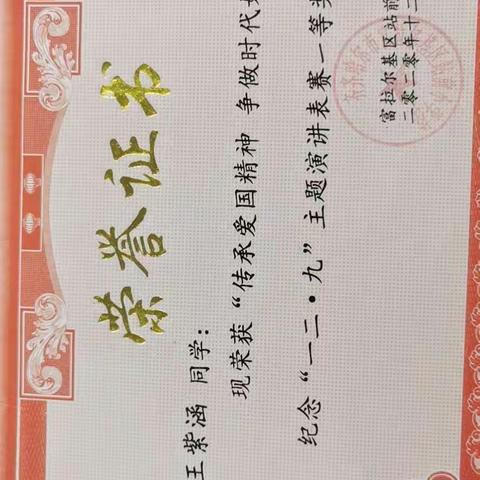 荣誉证书
王紫涵 同学：
现荣获“传承爱国精神 争做时代
纪念“一二·九”主题演讲表赛一等奖
富拉尔基区站前
二零二零年十二